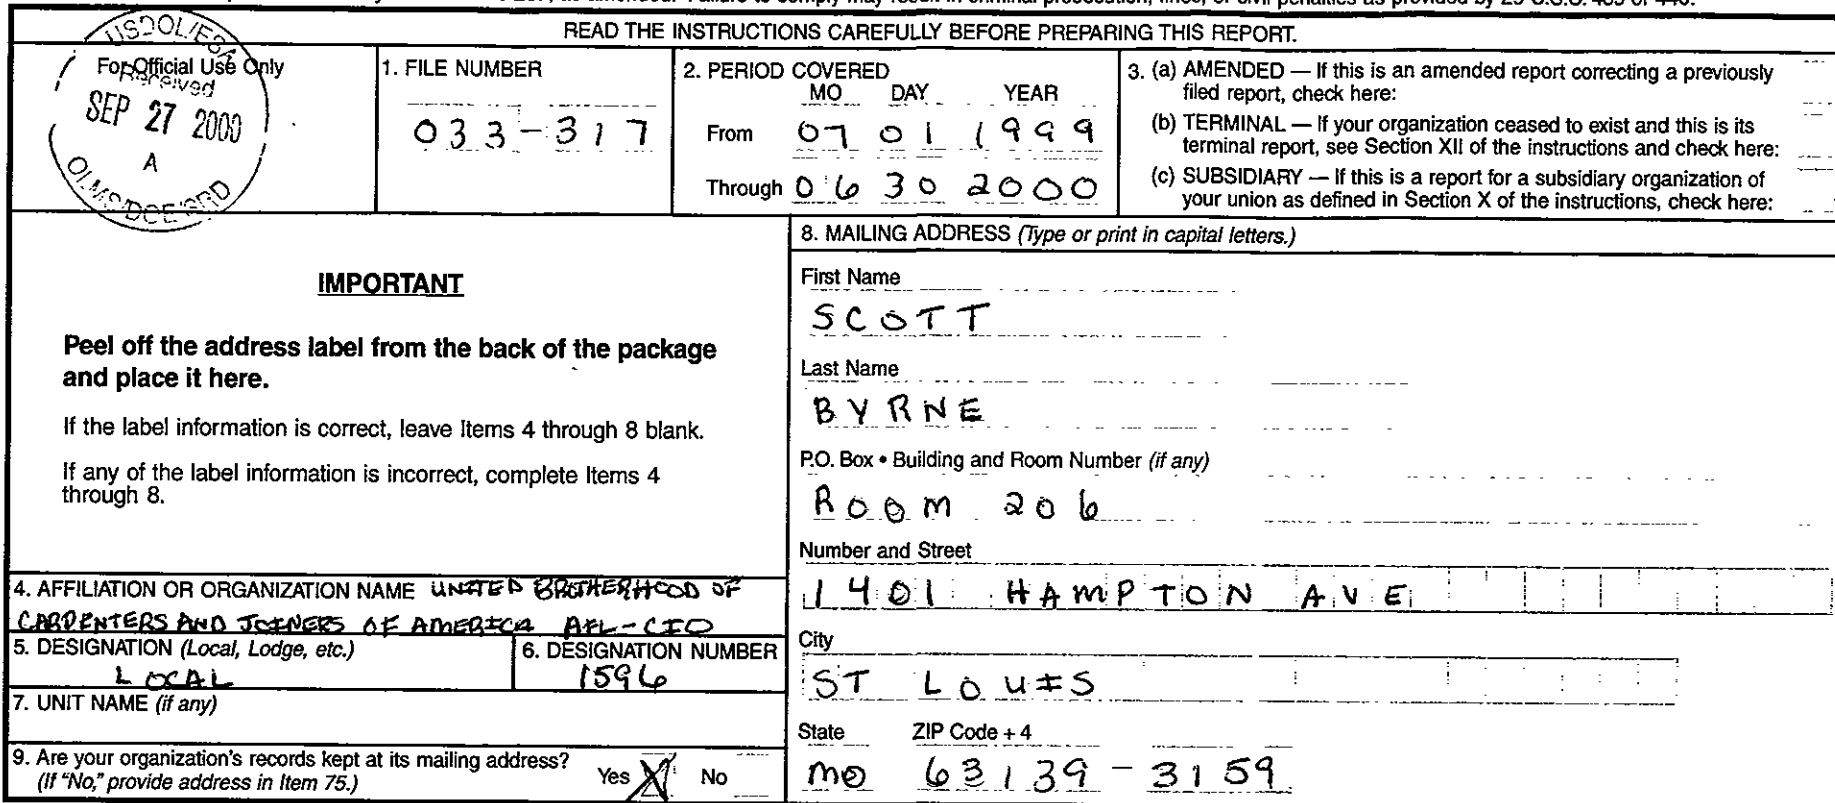 READ THE INSTRUCTIONS CAREFULLY BEFORE PREPARING THIS REPORT.
For Official Use Only
USDOL/ESA
Received
SEP 27 2000
A
1. FILE NUMBER
033-317
2. PERIOD COVERED
MO DAY YEAR
From 07 01 1999
Through 06 30 2000
3. (a) AMENDED — If this is an amended report correcting a previously
filed report, check here:
(b) TERMINAL — If your organization ceased to exist and this is its
terminal report, see Section XII of the instructions and check here:
(c) SUBSIDIARY — If this is a report for a subsidiary organization of
your union as defined in Section X of the instructions, check here:
IMPORTANT
Peel off the address label from the back of the package
and place it here.
If the label information is correct, leave Items 4 through 8 blank.
If any of the label information is incorrect, complete Items 4
through 8.
4. AFFILIATION OR ORGANIZATION NAME UNITED BROTHERHOOD OF
CARPENTERS AND JOINERS OF AMERICA AFL-CIO
5. DESIGNATION (Local, Lodge, etc.)
LOCAL
6. DESIGNATION NUMBER
1596
7. UNIT NAME (if any)
9. Are your organization's records kept at its mailing address?
(If "No," provide address in Item 75.)
Yes X No
8. MAILING ADDRESS (Type or print in capital letters.)
First Name
SCOTT
Last Name
BYRNE
P.O. Box • Building and Room Number (if any)
ROOM 206
Number and Street
1401 HAMPTON AVE
City
ST LOUIS
State ZIP Code + 4
MO 63139-3159